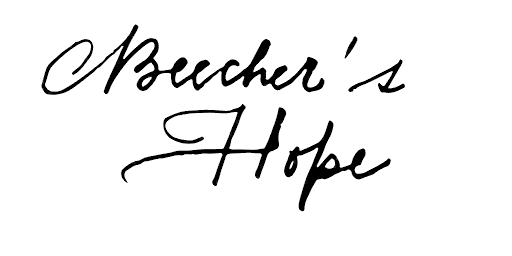 Beecher's
Hope